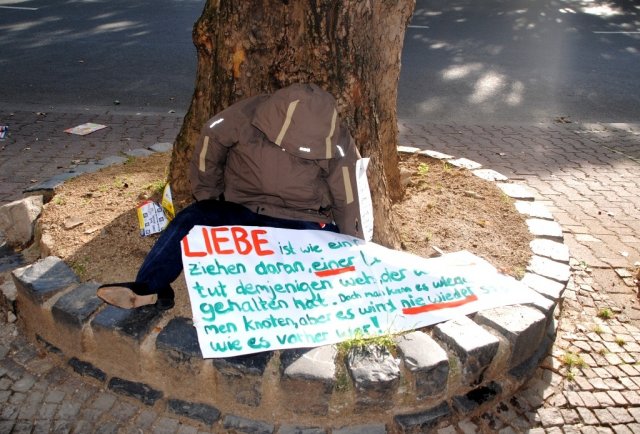 LIEBE ist wie ein
ziehen daran, einer
tut demjenigen weh, der
gehalten hat. Doch man kann es wieder
men knoten, aber es wird nie wieder so
wie es vorher war!